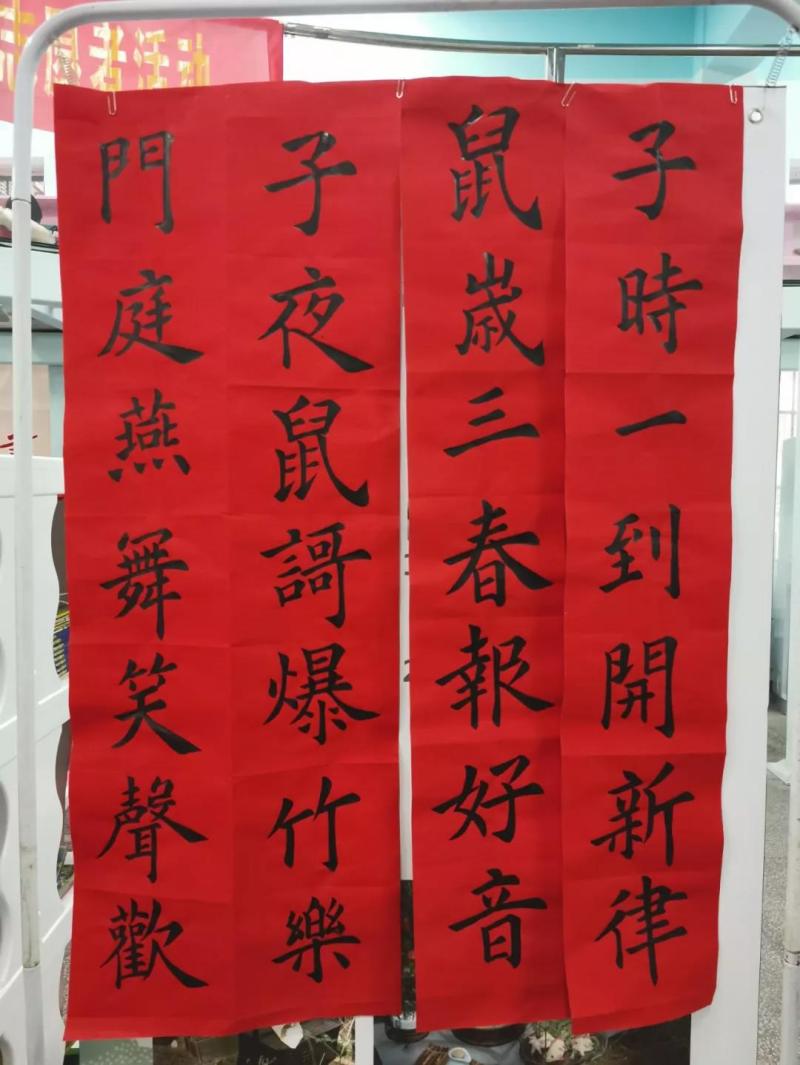 市属老活动
子時一到開新律
鼠歲三春報好音
子夜鼠謌爆竹樂
門庭燕舞笑聲歡